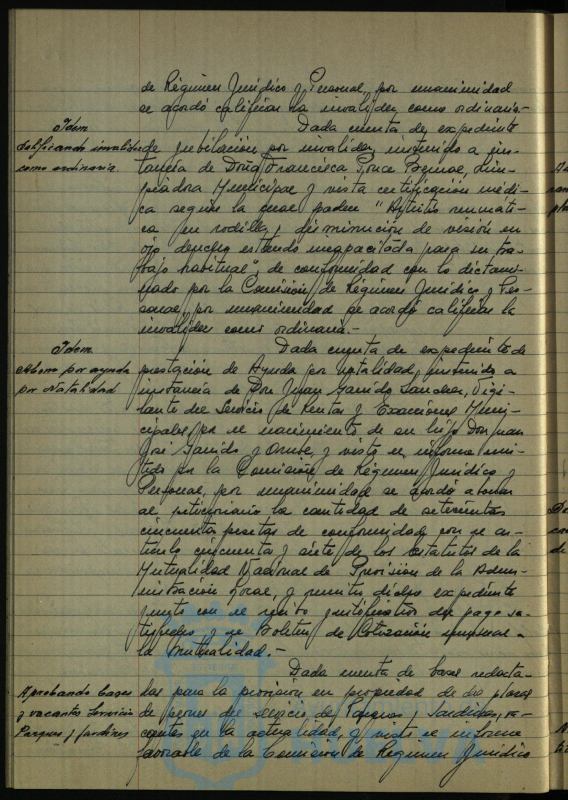 de Régimen Jurídico y Personal, por unanimidad
se acordó calificar la invalidez como ordinaria.-
Dada cuenta de expediente
Idem
calificando invalidez
como ordinaria.
de jubilación por invalidez, instruido a ins-
tancia de Doña Francisca Ponce Bernal, Lim-
piadora Municipal y vista certificación médi-
ca según la cual padece "Artritis reumáti-
ca en rodilla y disminución de visión en
ojo derecho, estando incapacitada para su tra-
bajo habitual", de conformidad con lo dictami-
nado por la Comisión de Régimen Jurídico y Per-
sonal, por unanimidad se acordó calificar la
invalidez como ordinaria.-
Dada cuenta de expediente de
Idem
Abono por ayuda
por Natalidad
prestación de Ayuda por natalidad, instruido a
instancia de Don Juan Garrido Sanchez, Vigi-
lante del Servicio de Rentas y Exacciones Muni-
cipales, por el nacimiento de su hijo Don Juan
José Garrido y visto el informe emi-
tido por la Comisión de Régimen Jurídico y
Personal, por unanimidad se acordó abonar
al peticionario la cantidad de setecientas
cincuenta pesetas de conformidad con el ar-
tículo cincuenta y siete de los Estatutos de la
Mutualidad Nacional de Previsión de la Admi-
nistración Local, y remitir dicho expediente
junto con el recibo justificativo del pago sa-
tisfecho y el Boletín de Cotización a
la Mutualidad.-
Dada cuenta de bases redacta-
Aprobando bases
y vacantes Servicio
Parques y Jardines
das para la provisión en propiedad de dos plazas
de peones del servicio de Parques y Jardines, va-
cantes en la actualidad, y visto el informe
favorable de la Comisión de Régimen Jurídico